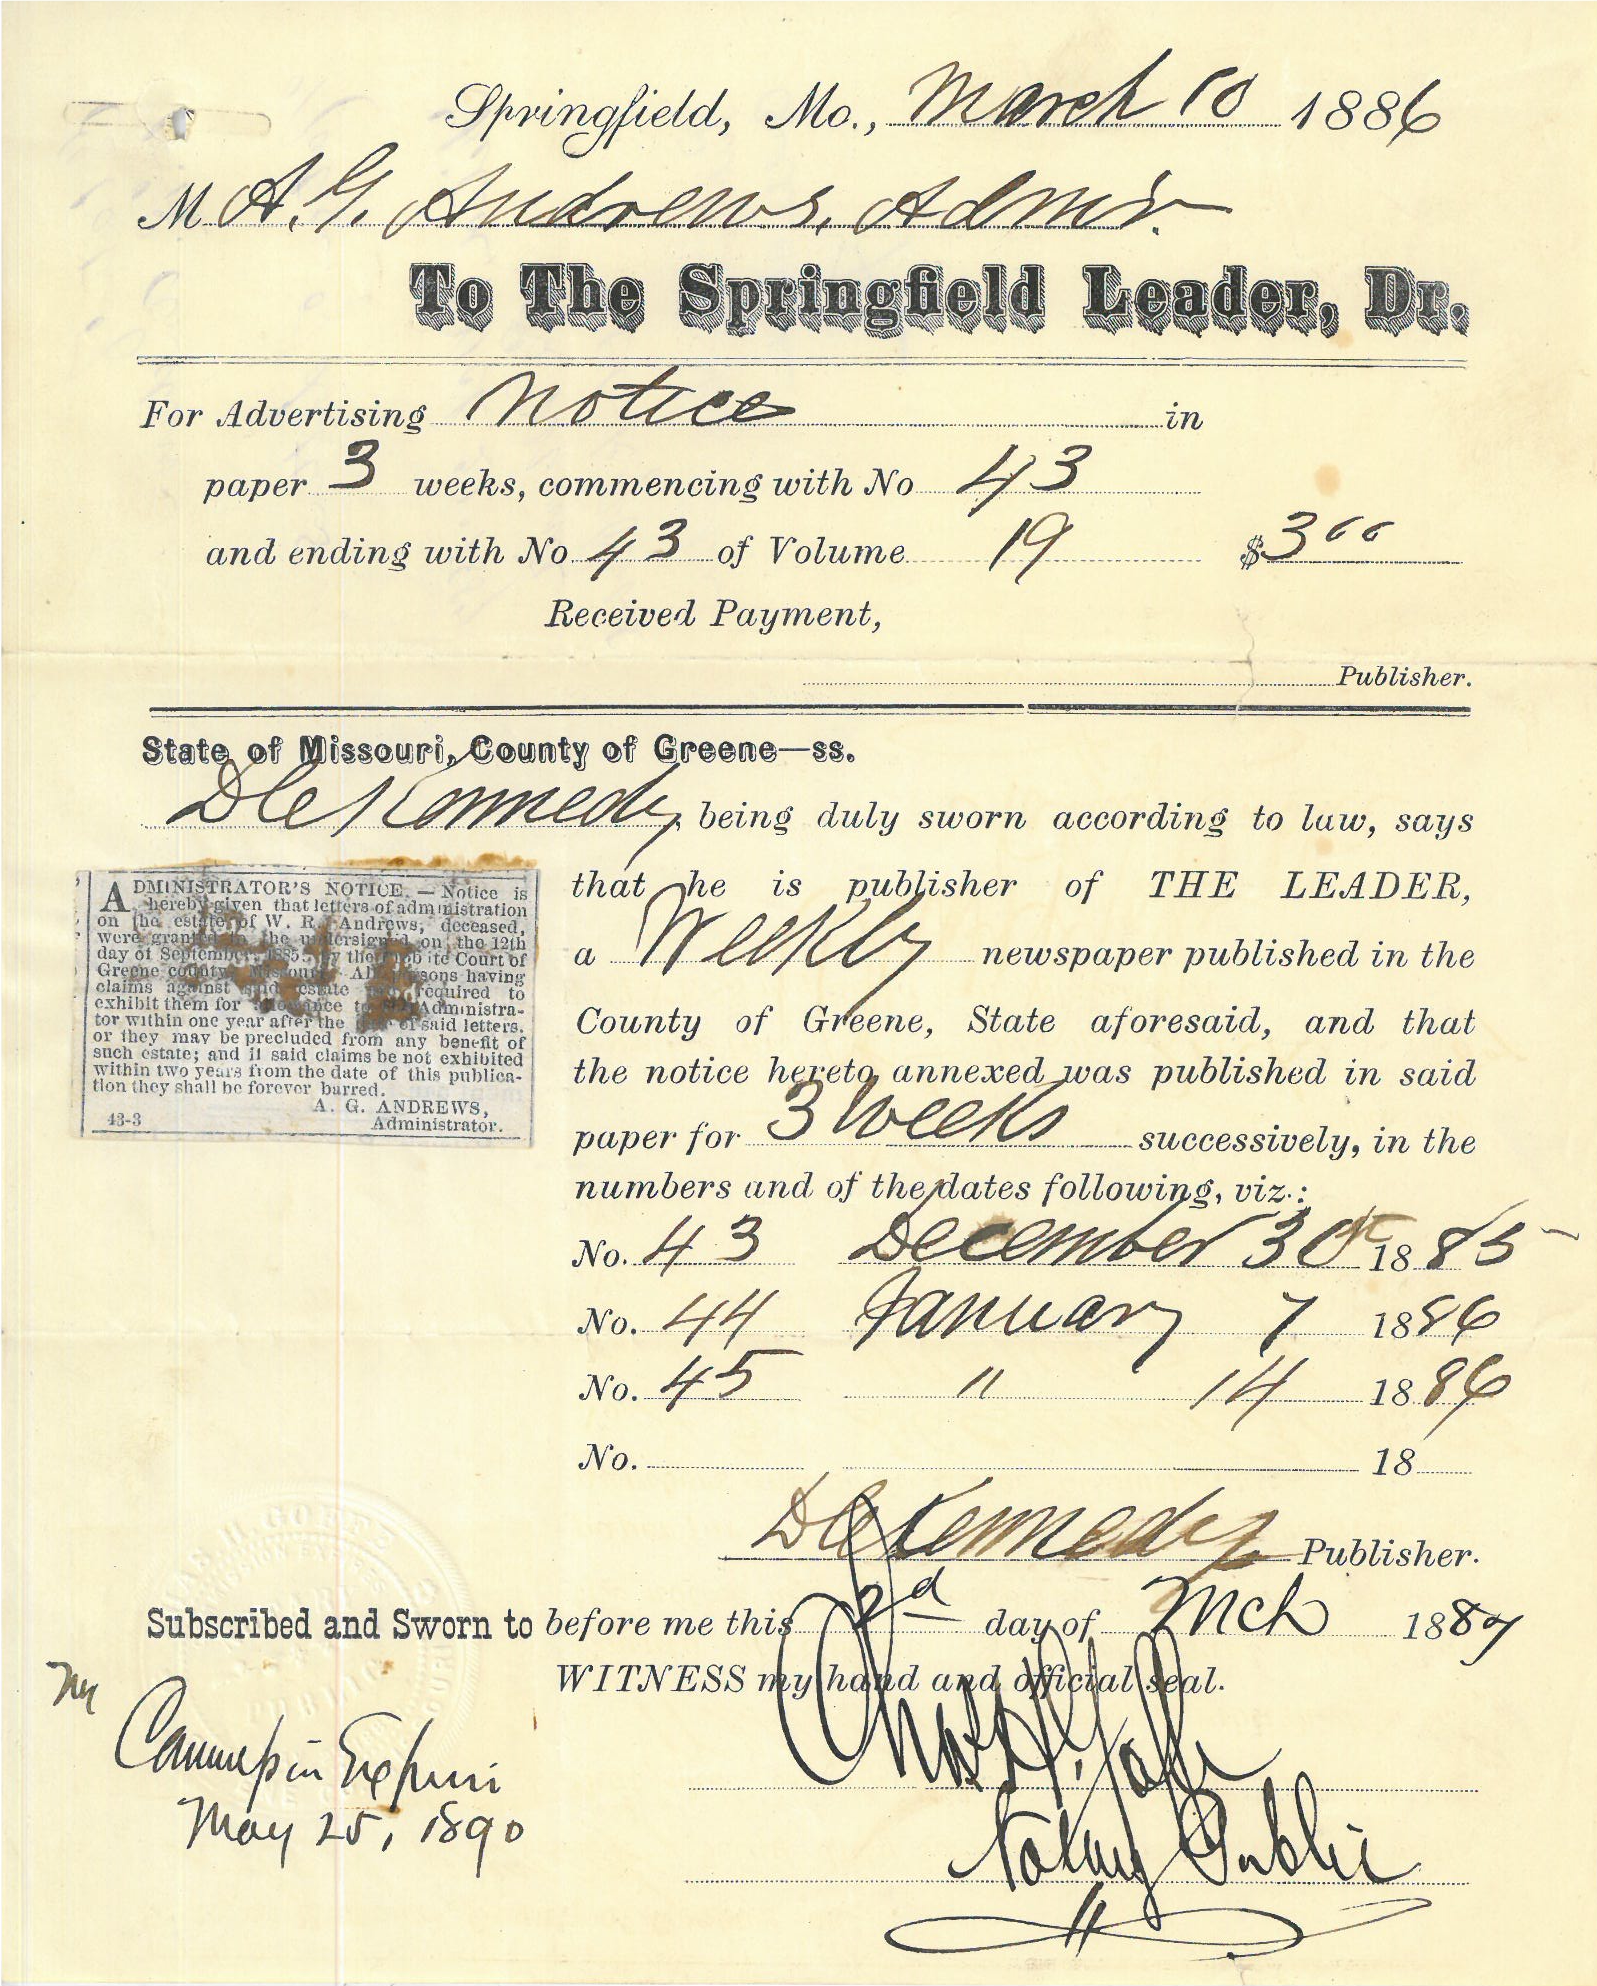 Springfield, Mo., March 10 1886
M A. G. Andrews, Admr.
To The Springfield Leader, Dr.
For Advertising Notice in
paper 3 weeks, commencing with No 43
and ending with No 43 of Volume 19 $3 00
Received Payment,
Publisher.
State of Missouri, County of Greene—ss.
D C Kennedy, being duly sworn according to law, says
that he is publisher of THE LEADER,
a Weekly newspaper published in the
County of Greene, State aforesaid, and that
the notice hereto annexed was published in said
paper for 3 Weeks successively, in the
numbers and of the dates following, viz.:
ADMINISTRATOR'S NOTICE.—Notice is
hereby given that letters of administration
on the estate of W. R. Andrews, deceased,
were granted to the undersigned on the 12th
day of September, 1885, by the Probate Court of
Greene county, Missouri. All persons having
claims against said estate are required to
exhibit them for allowance to the Administra-
tor within one year after the date of said letters,
or they may be precluded from any benefit of
such estate; and if said claims be not exhibited
within two years from the date of this publica-
tion they shall be forever barred.
A. G. ANDREWS,
43-3 Administrator.
No. 43 December 30 1885
No. 44 January 7 1886
No. 45 " 14 1886
No. 18
D C Kennedy Publisher.
Subscribed and Sworn to before me this 2d day of Mch 1887
WITNESS my hand and official seal.
My
Commission Expires
May 25, 1890
Chas H.
Notary Public